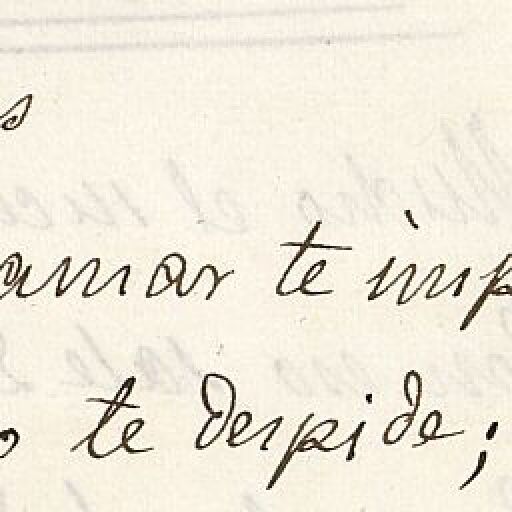 s
amar te imp
o te despide;